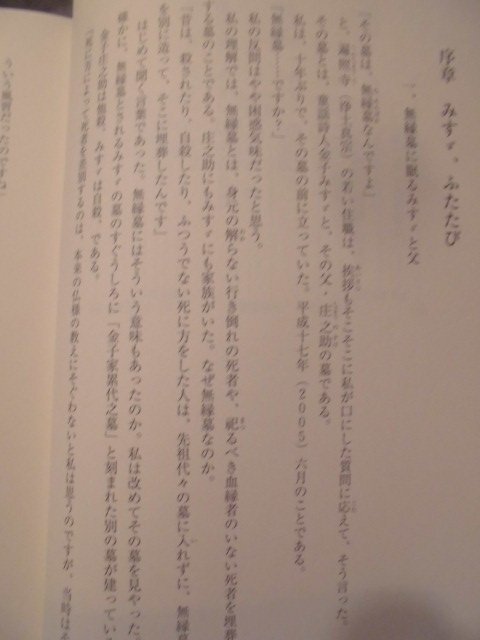 序章　みすゞ、ふたたび
一、無縁墓に眠るみすゞと父
『その墓は、無縁墓なんですよ』
と、遍照寺（浄土真宗）の若い住職は、挨拶もそこそこに私が口にした質問に応えて、そう言った。
その墓とは、童謡詩人金子みすゞと、その父・庄之助の墓である。
私は、十年ぶりで、その墓の前に立っていた。平成十七年（2005）六月のことである。
『無縁墓……ですか？』
私の反問はやや困惑気味だったと思う。
私の理解では、無縁墓とは、身元の解らない行き倒れの死者や、祀るべき血縁者のいない死者を埋葬
する墓のことである。庄之助にもみすゞにも家族がいた。なぜ無縁墓なのか。
『昔は、殺されたり、自殺したり、ふつうでない死に方をした人は、先祖代々の墓に入れずに、無縁墓
を別に造って、そこに埋葬したんです』
はじめて聞く言葉であった。無縁墓にはそういう意味もあったのか。私は改めてその墓を見やった。
確かに、無縁墓とされるみすゞの墓のすぐうしろに『金子家累代之墓』と刻まれた別の墓が建ってい
金子庄之助は他殺、みすゞは自殺、である。
『死に方によって死者を差別するのは、本来の仏様の教えにそぐわないと私は思うのですが、当時はそ
ういう風習だったのですね』